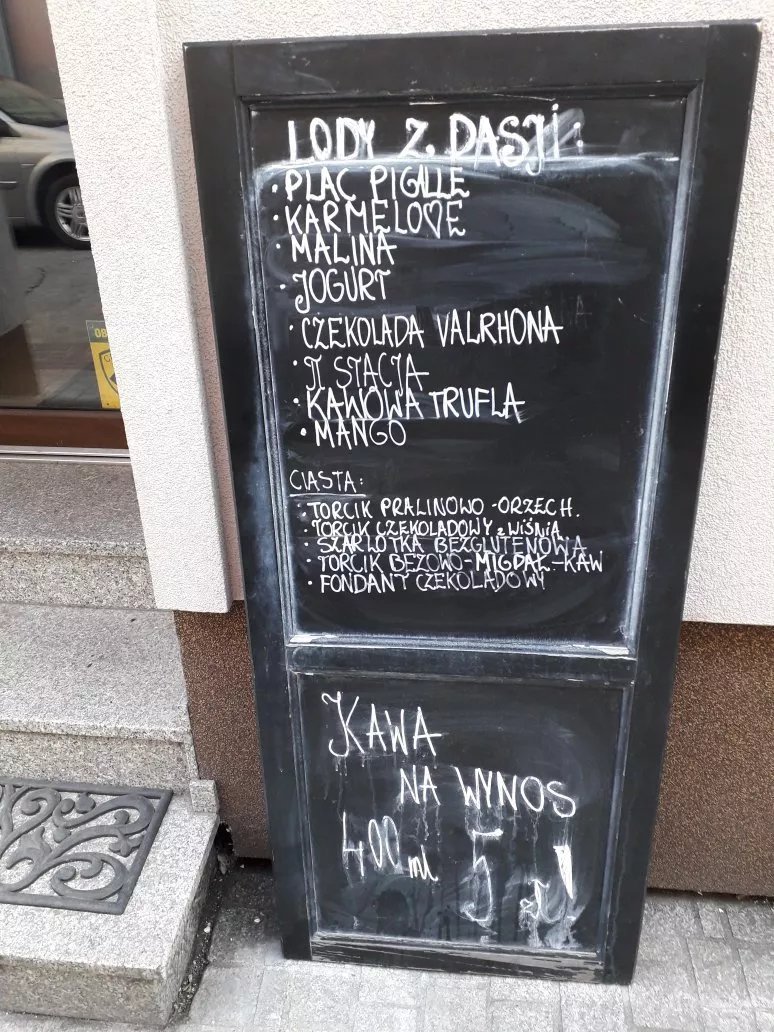 LODY Z DASJI:
· PLAC PIGALLE
· KARMELOVE
· MALINA
· JOGURT
· CZEKOLADA VALRHONA
· π STACJA
· KAWOWA TRUFLA
· MANGO
CIASTA:
· TORCIK PRALINOWO-ORZECH.
· TORCIK CZEKOLADOWY z WiŚNiĄ
· SZARLOTKA BEZGLUTENOWA
· TORCIK BEZOWO-MIGDAŁ-KAW
· FONDANT CZEKOLADOWY
KAWA
NA WYNOS
400 ml 5 zł!